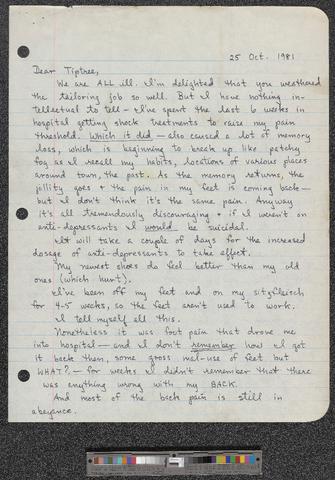 25 Oct. 1981
Dear Tiptree,
We are ALL ill. I'm delighted that you weathered
the tailoring job so well. But I have nothing in-
tellectual to tell – I've spent the last 6 weeks in
hospital getting shock treatments to raise my pain
threshold. Which it did – also caused a lot of memory
loss, which is beginning to break up like patchy
fog as I recall my habits, locations of various places
around town, the past. As the memory returns, the
jollity goes & the pain in my feet is coming back –
but I don't think it's the same pain. Anyway
it's all tremendously discouraging & if I weren't on
anti-depressants I would be suicidal.
It will take a couple of days for the increased
dosage of anti-depressants to take effect.
My newest shoes do feel better than my old
ones (which hurt).
I've been off my feet and on my sitzfleisch
for 4-5 weeks, so the feet aren't used to work.
I tell myself all this.
Nonetheless it was foot pain that drove me
into hospital – and I don't remember how I got
it back then, some gross mal-use of feet but
WHAT? – for weeks I didn't remember that there
was anything wrong with my BACK.
And most of the back pain is still in
abeyance.